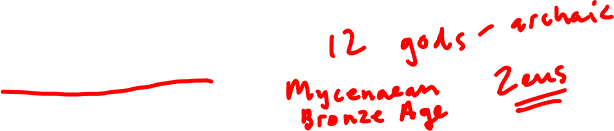 12 gods - archaic
Mycenaean
Bronze Age
Zeus